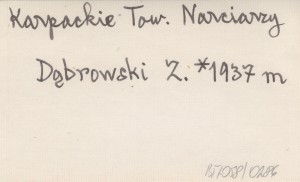 Karpackie Tow. Narciarzy
Dąbrowski Z. *1937 m